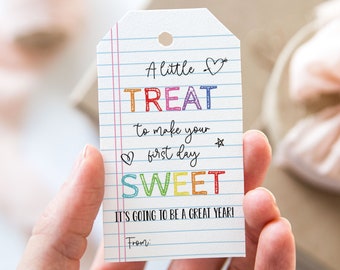 A little
TREAT
to make your
first day
SWEET
IT'S GOING TO BE A GREAT YEAR!
From: